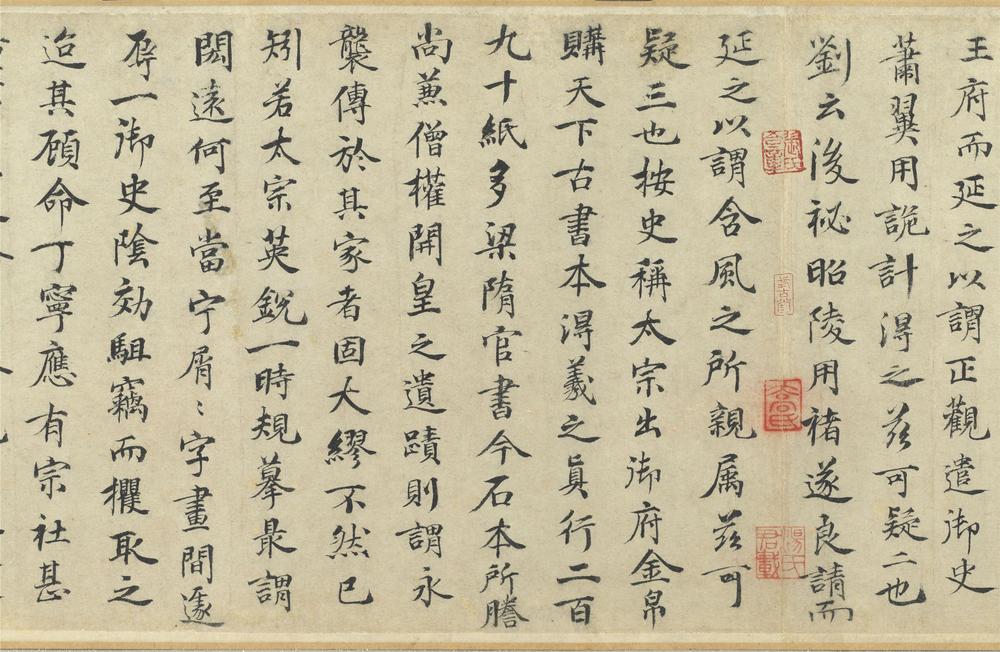 王府而延之以謂正觀遣御史
蕭翼用詭計得之茲可疑二也
劉云後祕昭陵用褚遂良請而
延之以謂含風之所親屬茲可
疑三也按史稱太宗出御府金帛
購天下古書本得羲之真行二百
九十紙多梁隋官書今石本所謄
尚兼僧權開皇之遺蹟則謂永
襲傳於其家者固大繆不然已
矧若太宗英銳一時規摹最謂
閎遠何至當宁屑〻字畫間遂
辱一御史陰効駔竊而攫取之
迨其顧命丁寧應有宗社甚